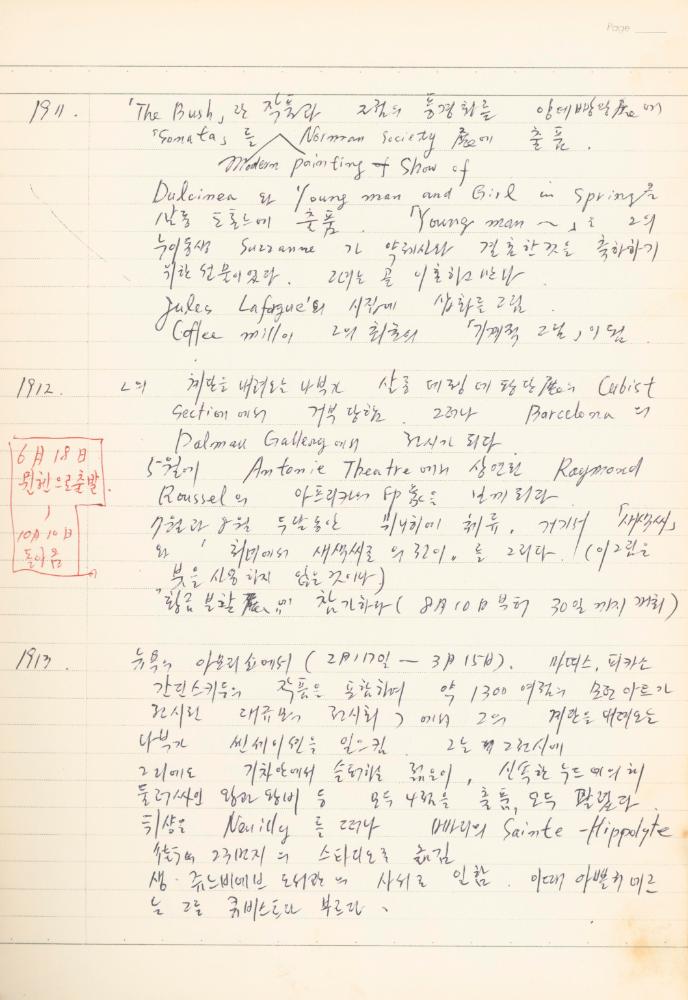 Page
1911. 「The Bush」란 작품과 풍경화를 앙데빵당展에
「Sonata」를 Norman Society 展에 출품.
Modern painting Show of
Dulcinea 와 「Young man and Girl in Spring」을
살롱 도톤느에 출품. 「Young man ~」은 그의
누이동생 Suzanne 가 약제사와 결혼한 것을 축하하기
위한 선물이었다. 그녀는 곧 이혼하고 만다
Jules Lafogue의 시집에 삽화를 그림
Coffee mill이 그의 최초의 「기계적 그림」이 됨.
1912. 그의 계단을 내려오는 나부가 살롱 데 장데팡당展의 Cubist
Section에서 거부당함. 그러나 Barcelona 의
Dalmau Gallerg에서 전시가 되다
5월에 Antonie Theatre에서 상연된 Raymond
Roussel의 아프리카의 印象을 보게 되다
7월과 8월 두달동안 뮌헨에 체류. 거기서 「새색씨」
와 「처녀에서 새색씨로의 전이」를 그리다. (이 그림은
붓을 사용하지 않은 것이다)
"황금분할展"에 참가하다 (8月10日부터 30일까지 개최)
6月18日
뮌헨으로출발
10月10日
돌아옴
1913. 뉴욕의 아모리쇼에서 (2月17일 — 3月15日). 마띠스, 피카소
칸딘스키등의 작품을 포함하여 약 1300여점의 모던아트가
전시된 대규모의 전시회)에서 그의 계단을 내려오는
나부가 센세이션을 일으킴. 그는 그 전시에
그외에도 기차안에서 슬퍼하는 젊은이, 신속한 누드에 의해
둘러싸인 왕과 왕비 등 모두 4점을 출품, 모두 팔렸다
뒤샹은 Neuilly 를 떠나 빠리의 Sainte-Hippolyte
23번지의 스타디오로 옮김
생·쥬느비에브 도서관의 사서로 일함. 이때 아뽈리네르
는 그를 큐비스트라 부르다.